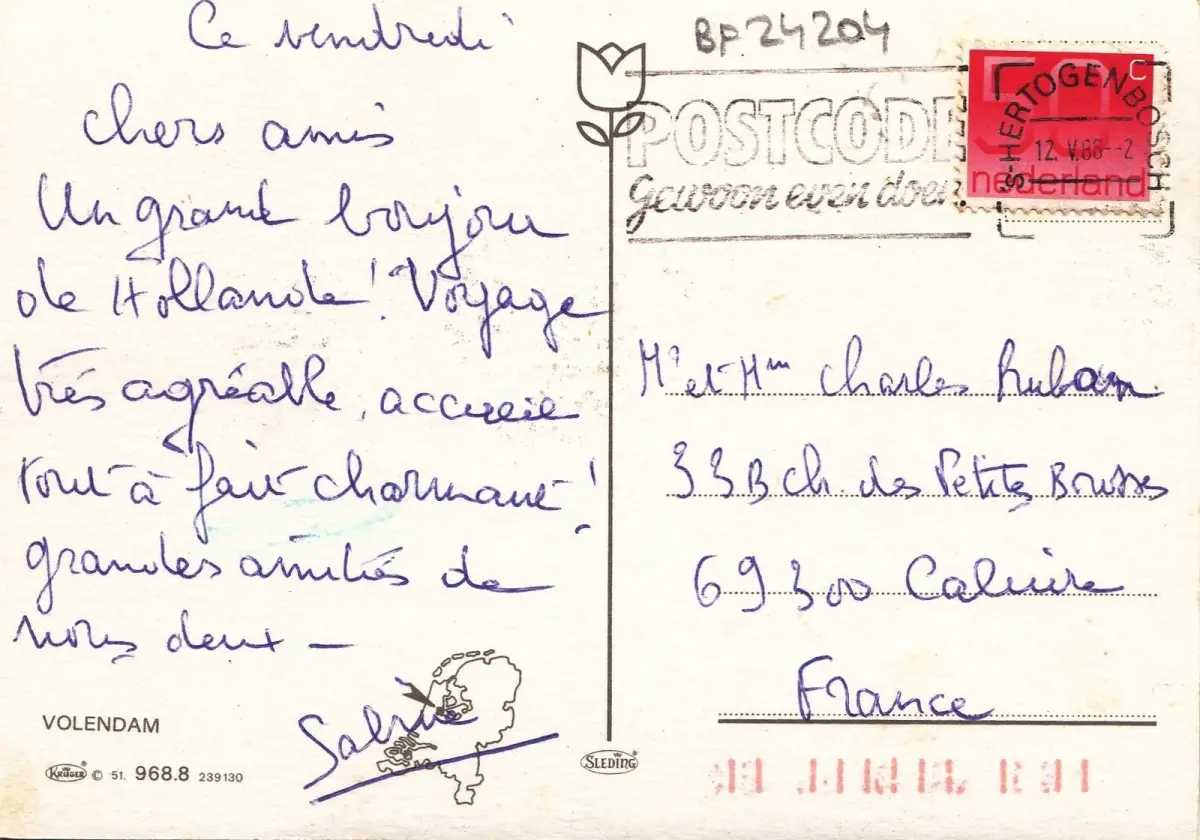 Ce vendredi
Chers amis
Un grand bonjour
de Hollande! Voyage
très agréable, accueil
tout à fait charmant!
grandes amitiés de
nous deux —
Sabine
VOLENDAM
KRUGER ® © 51. 968.8 239130
SLEDING ®
BF 24204
POSTCODE
Gewoon even doen
'S-HERTOGENBOSCH
12. V.86--2
50
C
nederland
Mr et Mme Charles
33B ch. des Petites Brosses
69300 Caluire
France